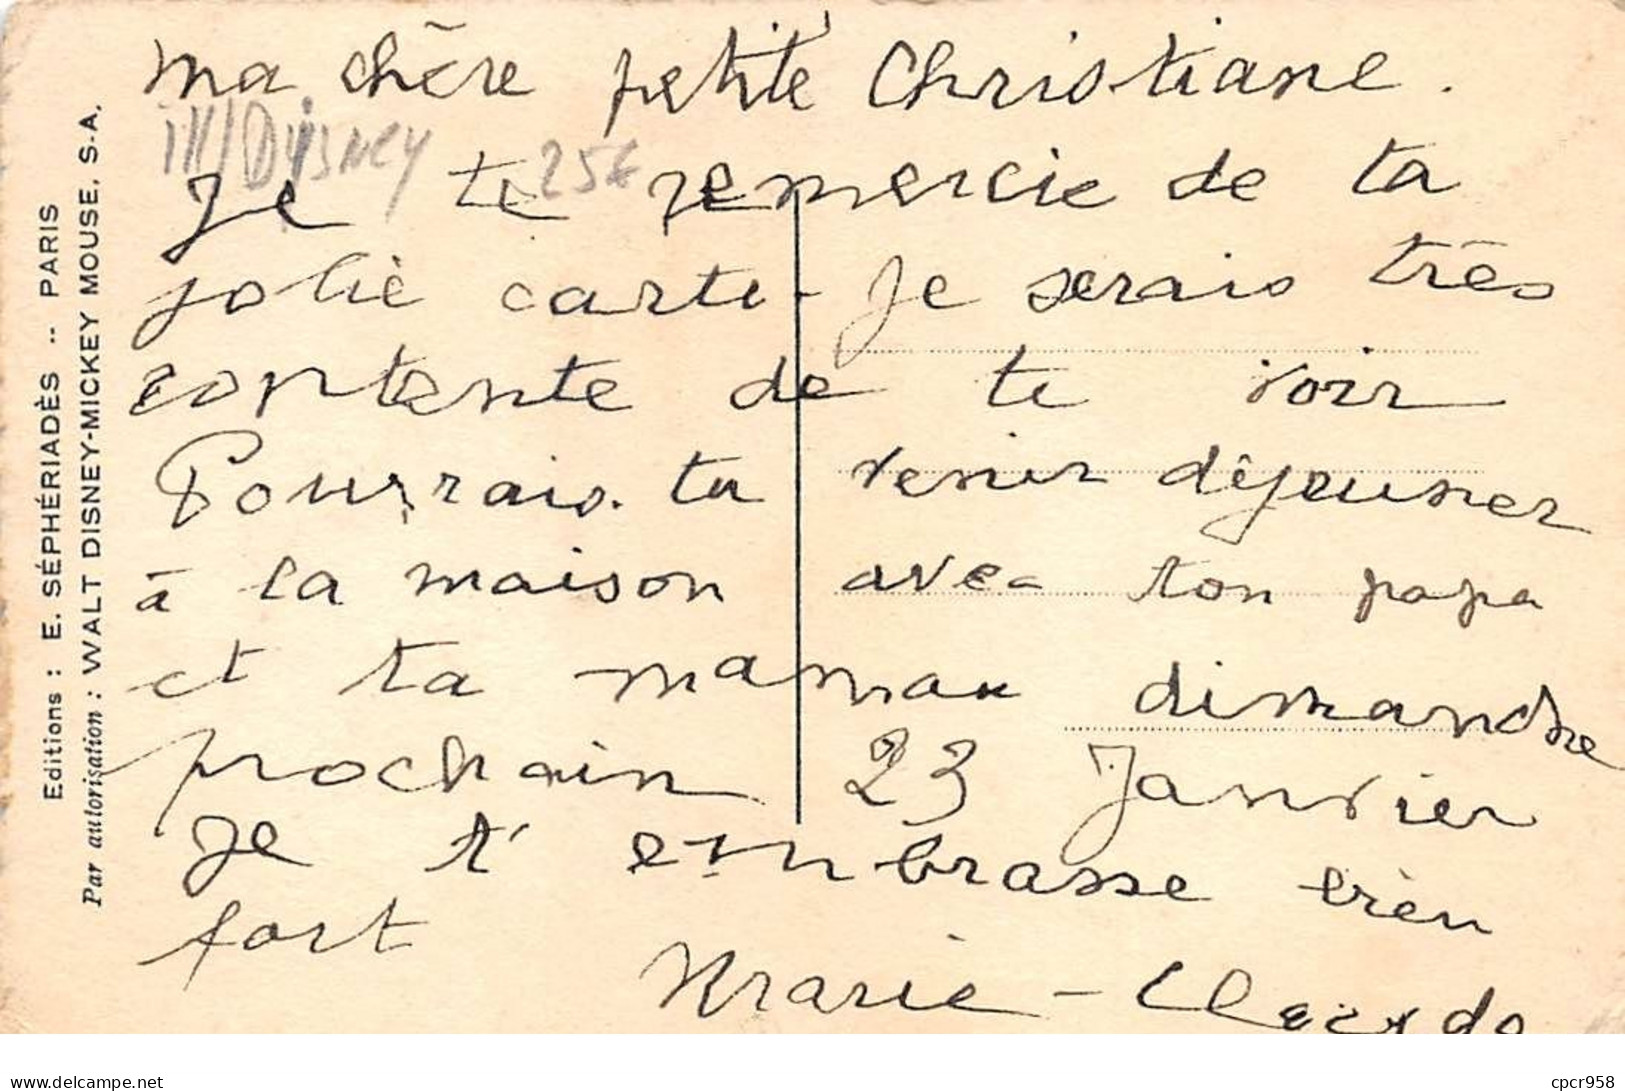 Editions : E. SÉPHÉRIADÈS -- PARIS
Par autorisation : WALT DISNEY-MICKEY MOUSE. S-A.
ma chère petite Christiane.
ill/Disney 25€
Je te remercie de ta
jolie carte. Je serais très
contente de te voir
Pourrais. tu venir déjeuner
à la maison avec ton papa
et ta maman dimandre
prochain 23 Janvier
Je t'embrasse bien
fort
Marie-
delcampe.net
cpcr958